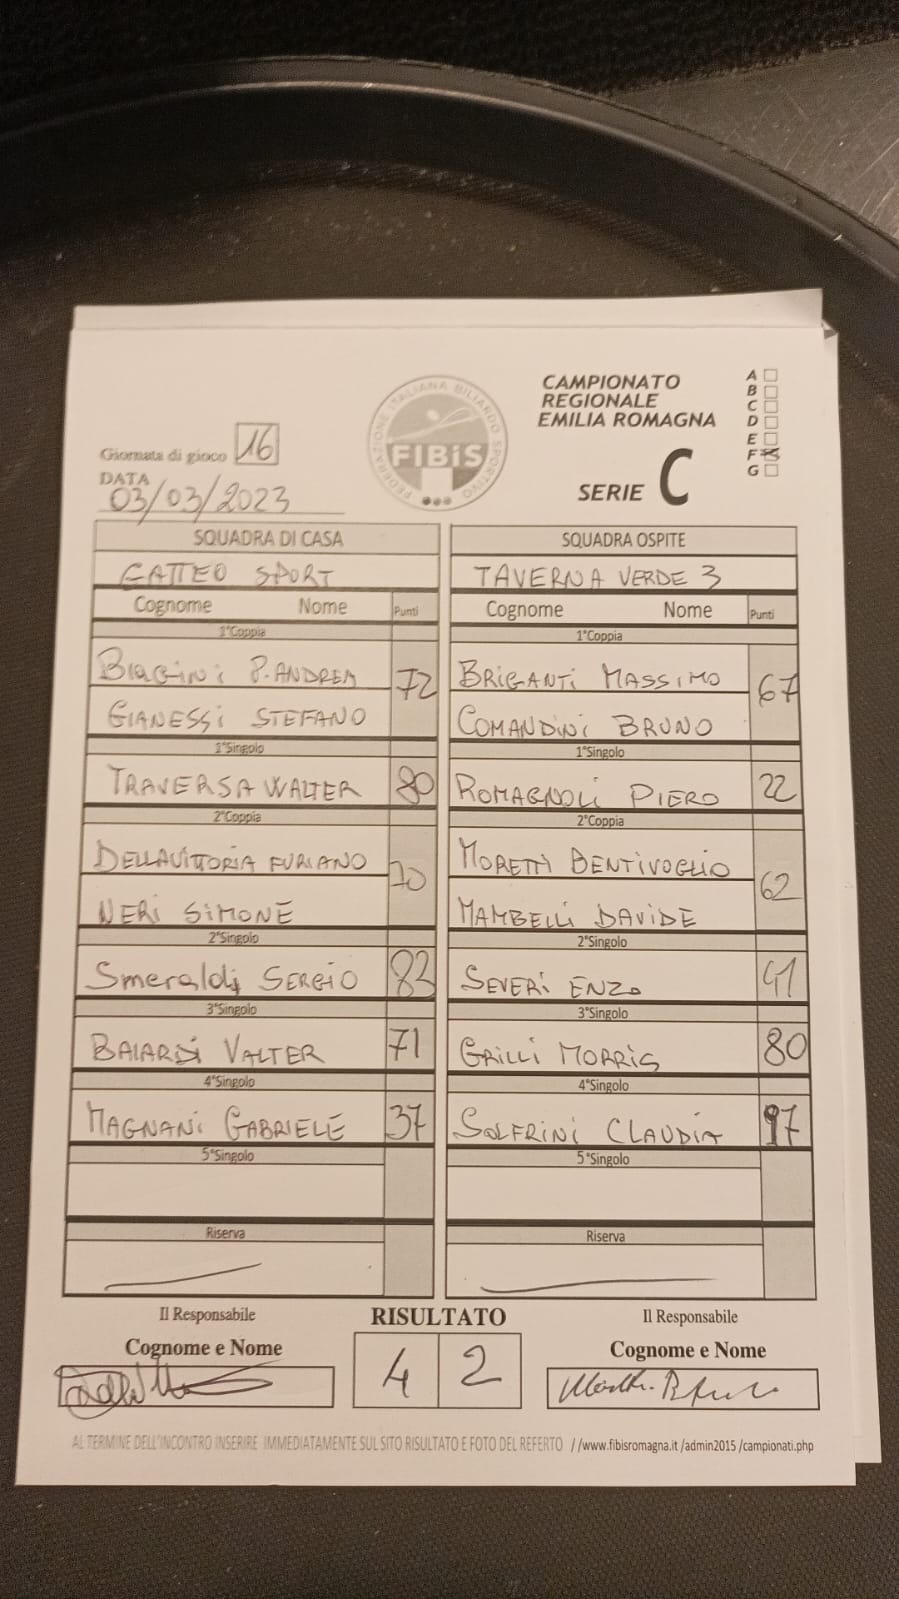 CAMPIONATO
REGIONALE
EMILIA ROMAGNA
SERIE C
A
B
C
D
E
F
G
FEDERAZIONE ITALIANA BILIARDO SPORTIVO
FIBiS
Giornata di gioco 16
DATA
03/03/2023
SQUADRA DI CASA
GATTEO SPORT
Cognome Nome Punti
1°Coppia
BIAGINI P.ANDREA 72
GIANESSI STEFANO
1°Singolo
TRAVERSA WALTER 80
2°Coppia
DELLAVITTORIA FURIANO 70
NERI SIMONE
2°Singolo
Smeraldi SERGIO 83
3°Singolo
BAIARDI VALTER 71
4°Singolo
MAGNANI GABRIELE 37
5°Singolo
Riserva
SQUADRA OSPITE
TAVERNA VERDE 3
Cognome Nome Punti
1°Coppia
BRIGANTI MASSIMO 67
COMANDINI BRUNO
1°Singolo
ROMAGNOLI PIERO 22
2°Coppia
MORETTI BENTIVOGLIO 62
MAMBELLI DAVIDE
2°Singolo
SEVERI ENZO 41
3°Singolo
GRILLI MORRIS 80
4°Singolo
SOLFRINI CLAUDIA 97
5°Singolo
Riserva
Il Responsabile
Cognome e Nome
RISULTATO
4 2
Il Responsabile
Cognome e Nome
AL TERMINE DELL'INCONTRO INSERIRE IMMEDIATAMENTE SUL SITO RISULTATO E FOTO DEL REFERTO //www.fibisromagna.it /admin2015 /campionati.php